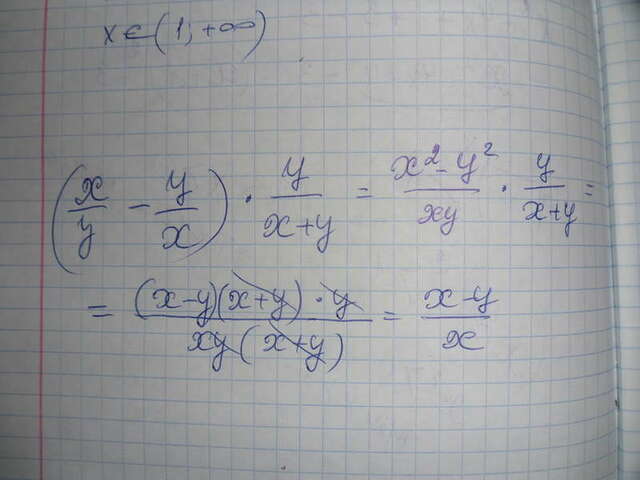 x ∈ (1; +∞)
(x/y - y/x) · y/(x+y) = (x² - y²)/(xy) · y/(x+y) =
= ((x-y)(x+y) · y)/(xy(x+y)) = (x-y)/x